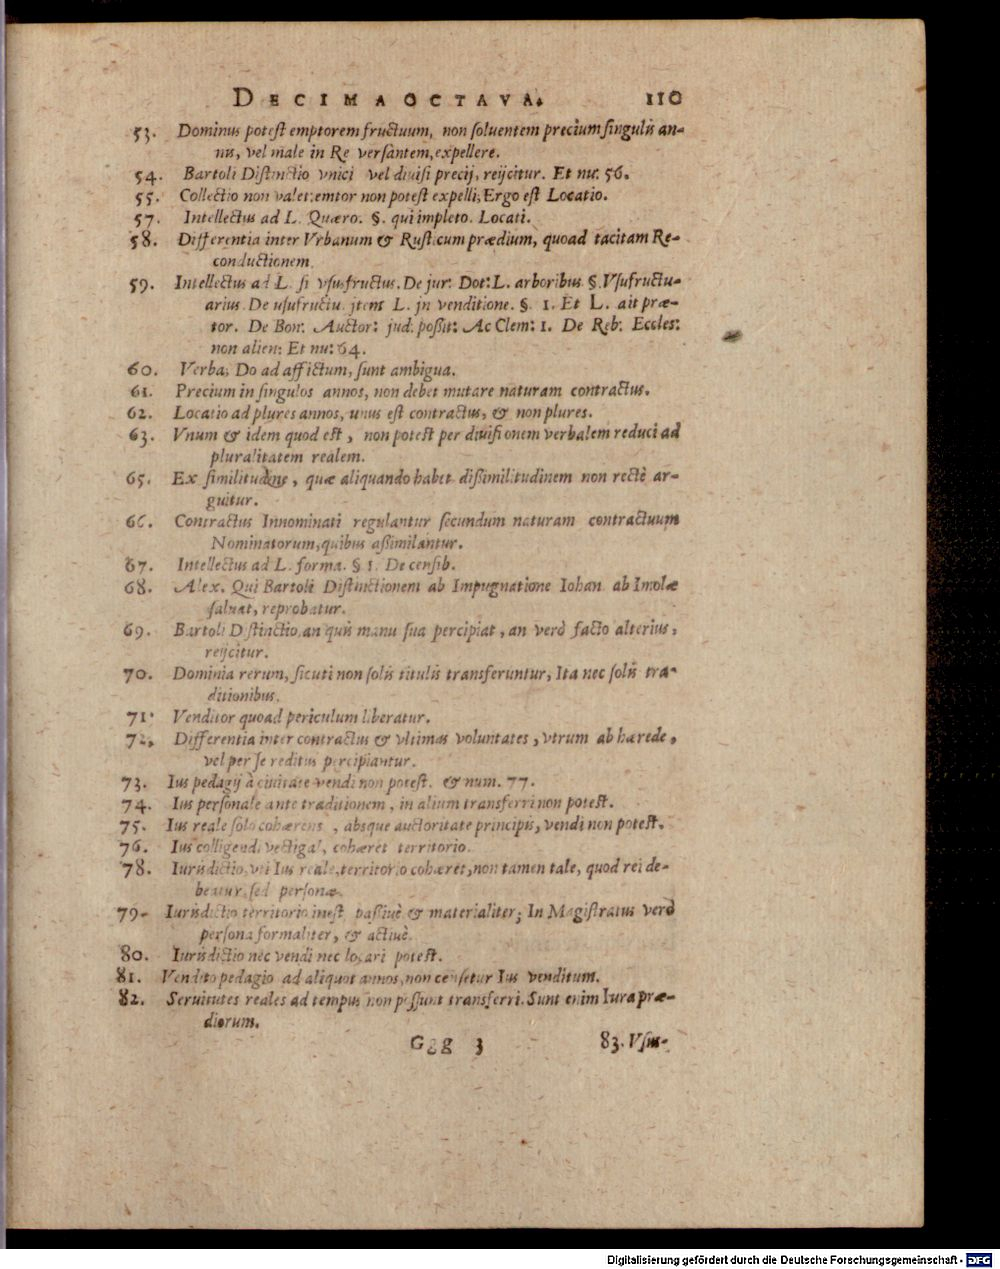 DECIMAOCTAVA. 110
53. Dominus potest emptorem fructuum, non soluentem precium singulis an-
nis, vel male in Re versantem, expellere.
54. Bartoli Distinctio vnici vel diuisi precij, reijcitur. Et nu: 56.
55. Collectio non valet: emtor non potest expelli, Ergo est Locatio.
57. Intellectus ad L. Quæro. §. qui impleto. Locati.
58. Differentia inter Vrbanum & Rusticum prædium, quoad tacitam Re-
conductionem.
59. Intellectus ad L. si vsusfructus. De jur: Dot: L. arboribus. §. Vsufructu-
arius. De usufructu. jtem L. jn venditione. §. 1. Et L. ait præ-
tor. De Bon: Auctor: jud: possit: Ac Clem: 1. De Reb: Eccles:
non alien: Et nu: 64.
60. Verba, Do ad affictum, sunt ambigua.
61. Precium in singulos annos, non debet mutare naturam contractus.
62. Locatio ad plures annos, unus est contractus, & non plures.
63. Vnum & idem quod est, non potest per diuisionem verbalem reduci ad
pluralitatem realem.
65. Ex similitudine, quæ aliquando habet dissimilitudinem non rectè ar-
guitur.
66. Contractus Innominati regulantur secundum naturam contractuum
Nominatorum, quibus assimilantur.
67. Intellectus ad L. forma. § 1. De censib.
68. Alex. Qui Bartoli Distinctionem ab Impugnatione Iohan. ab Imolæ
saluat, reprobatur.
69. Bartoli Distinctio, an quis manu sua percipiat, an verò facto alterius,
reijcitur.
70. Dominia rerum, sicuti non solis titulis transferuntur, Ita nec solis tra-
ditionibus.
71. Venditor quoad periculum liberatur.
72. Differentia inter contractus & vltimas voluntates, vtrum ab hærede,
vel per se reditus percipiantur.
73. Ius pedagij à ciuitate vendi non potest. & num. 77.
74. Ius personale ante traditionem, in alium transferri non potest.
75. Ius reale solo cohærens, absque auctoritate principis, vendi non potest.
76. Ius colligendi vectigal, cohæret territorio.
78. Iurisdictio, vti Ius reale, territorio cohæret, non tamen tale, quod rei de-
beatur, sed personæ.
79. Iurisdictio territorio inest passiuè & materialiter; In Magistratus verò
persona formaliter, & actiuè.
80. Iurisdictio nec vendi nec locari potest.
81. Vendito pedagio ad aliquot annos, non censetur Ius venditum.
82. Seruitutes reales ad tempus non possunt transferri. Sunt enim Iura præ-
diorum.
Ggg 3 83. Vsus-
Digitalisierung gefördert durch die Deutsche Forschungsgemeinschaft - DFG